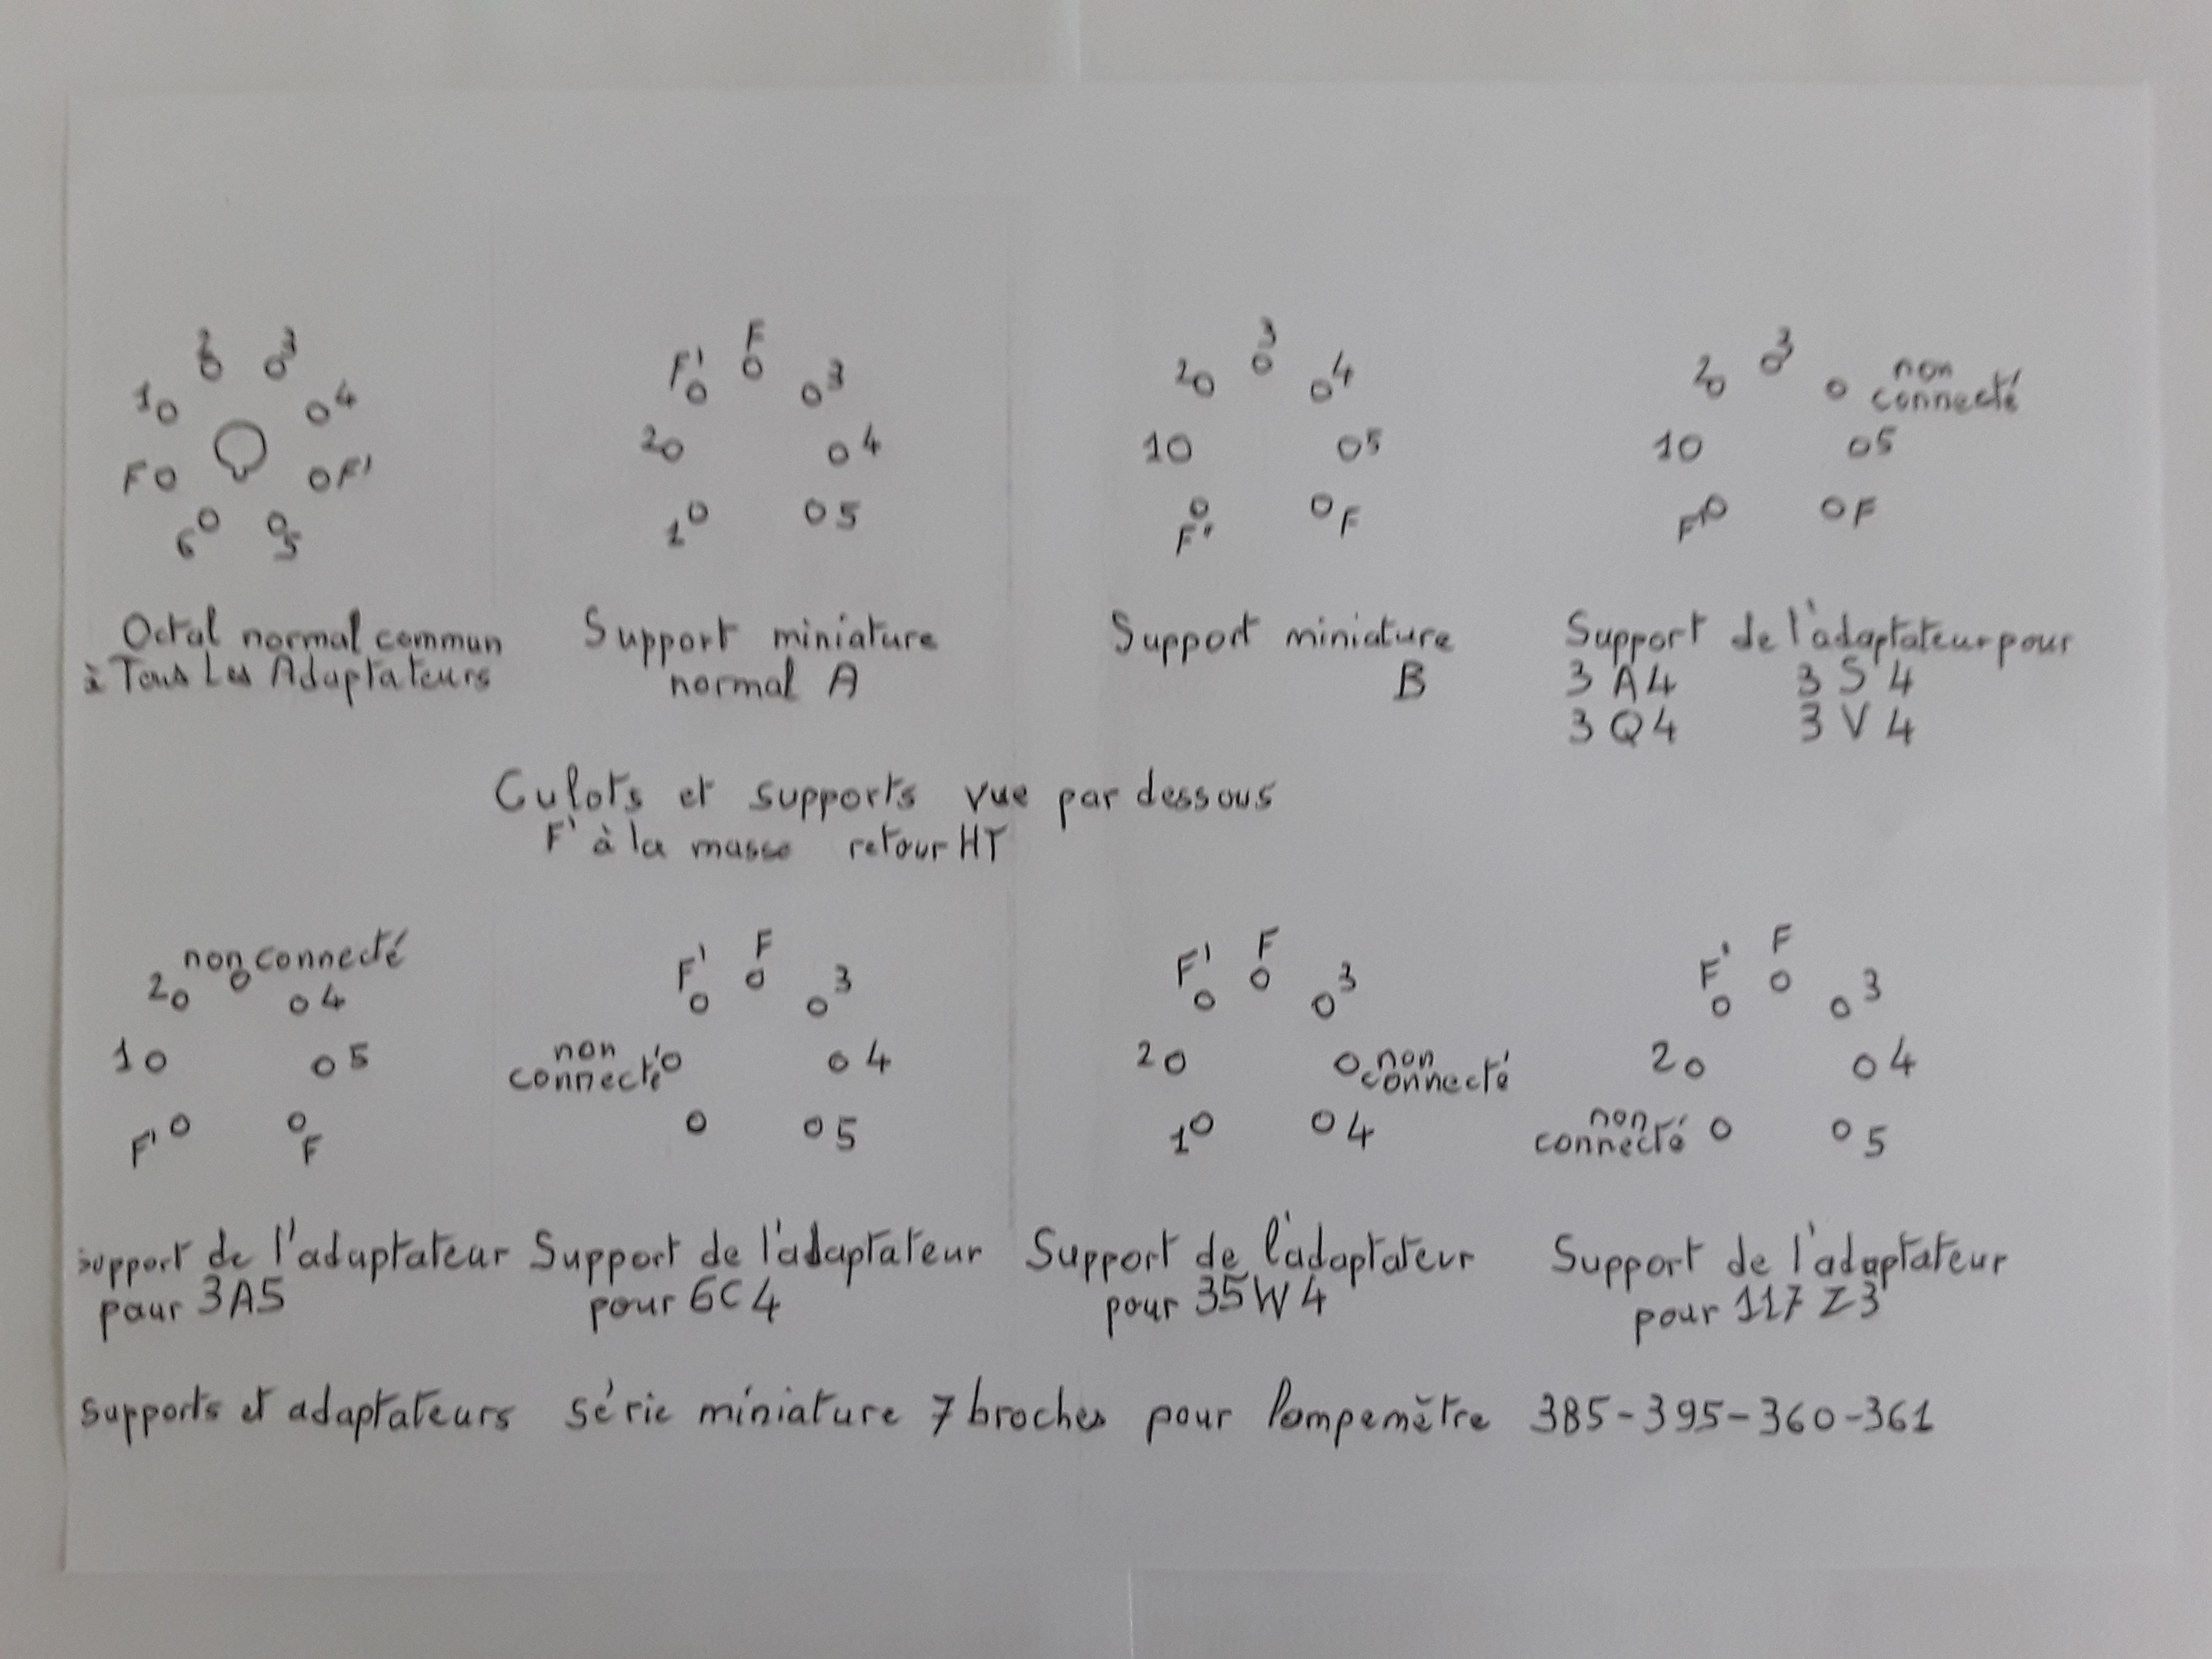 2 3
1 4
F F'
6 5
Octal normal commun
à Tous Les Adaptateurs
F' F
3
2 4
1 5
Support miniature
normal A
3
2 4
1 5
F' F
Support miniature
B
2 3 non
connecté
1 5
F' F
Support de l'adaptateur pour
3A4 3S4
3Q4 3V4
Culots et supports vue par dessous
F' à la masse retour HT
non connecté
2 4
1 5
F' F
support de l'adaptateur
pour 3A5
F' F
3
non
connecté 4
5
Support de l'adaptateur
pour 6C4
F' F
3
2 non
connecté
1 4
Support de l'adaptateur
pour 35W4
F' F
3
2 4
non
connecté 5
Support de l'adaptateur
pour 117Z3
supports et adaptateurs série miniature 7 broches pour lampemètre 385-395-360-361